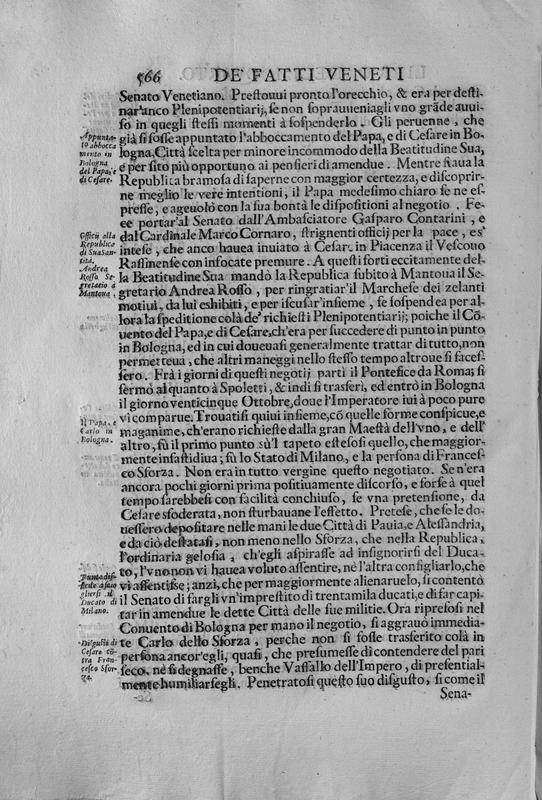 566 DE' FATTI VENETI
Senato Venetiano. Prestouui pronto l'orecchio, & era per desti-
nar'anco Plenipotentiarij, se non soprauueniagli vno grãde auui-
so in quegli stessi momenti à sospenderlo. Gli peruenne, che
già si fosse appuntato l'abboccamento del Papa, e di Cesare in Bo-
logna, Città scelta per minore incommodo della Beatitudine Sua,
e per sito più opportuno ai pensieri di amendue. Mentre staua la
Republica bramosa di saperne con maggior certezza, e discoprir-
ne meglio le vere intentioni, il Papa medesimo chiaro se ne es-
presse, e ageuolò con la sua bontà le dispositioni al negotio. Fe-
ce portar'al Senato dall'Ambasciatore Gasparo Contarini, e
dal Cardinale Marco Cornaro, strignenti officij per la pace, es'
intese, che anco hauea inuiato à Cesare in Piacenza il Vescouo
Rassinense con infocate premure. A questi forti eccitamenti del-
la Beatitudine Sua mandò la Republica subito à Mantoua il Se-
gretario Andrea Rosso, per ringratiar'il Marchese dei zelanti
motiui, da lui eshibiti, e per iscusar'insieme, se sospendea per al-
lora la speditione colà de' richiesti Plenipotentiarij; poiche il Cõ-
uento del Papa, e di Cesare, ch'era per succedere di punto in punto
in Bologna, ed in cui doueuasi generalmente trattar di tutto, non
permetteua, che altri maneggi nello stesso tempo altroue si faces-
sero. Frà i giorni di questi negotij partì il Pontefice da Roma; si
fermò alquanto à Spoletti, & indi si trasferì, ed entrò in Bologna
il giorno venticinque Ottobre, doue l'Imperatore iui à poco pure
vi comparue. Trouatisi quiui insieme, cõ quelle forme conspicue, e
maganime, ch'erano richieste dalla gran Maestà dell'vno, e dell'
altro, fù il primo punto sù'l tapeto estesosi quello, che maggior-
mente infastidiua; fù lo Stato di Milano, e la persona di Frances-
co Sforza. Non era in tutto vergine questo negotiato. Se n'era
ancora pochi giorni prima positiuamente discorso, e forse à quel
tempo sarebbesi con facilità conchiuso, se vna pretensione, da
Cesare sfoderata, non sturbauane l'effetto. Pretese, che se le do-
uessero depositare nelle mani le due Città di Pauia, e Alessandria,
e da ciò destatasi, non meno nello Sforza, che nella Republica,
l'ordinaria gelosia, ch'egli aspirasse ad insignorirsi del Duca-
to, l'vno non vi hauea voluto assentire, nè l'altra consigliarlo, che
vi assentisse; anzi, che per maggiormente alienaruelo, si contentò
il Senato di fargli vn'imprestito di trentamila ducati, e di far capi-
tar in amendue le dette Città delle sue militie. Ora ripresosi nel
Conuento di Bologna per mano il negotio, si aggrauò immedia-
te Carlo dello Sforza, perche non si fosse trasferito colà in
persona ancor'egli, quasi, che presumesse di contendere del pari
seco, nè si degnasse, benche Vassallo dell'Impero, di presential-
mente humiliarsegli. Penetratosi questo suo disgusto, si come il
Sena-
Appunta-
to abbocca
mento in
Bologna
del Papa, e
di Cesare.
Officij alla
Republica
di Sua San-
tità.
Andrea
Rosso Se-
gretario à
Mantoua.
Il Papa, e
Carlo in
Bologna.
Ducato di
Milano.
Disgusti di
Cesare cõ-
tra Fran-
cesco Sfor-
za.